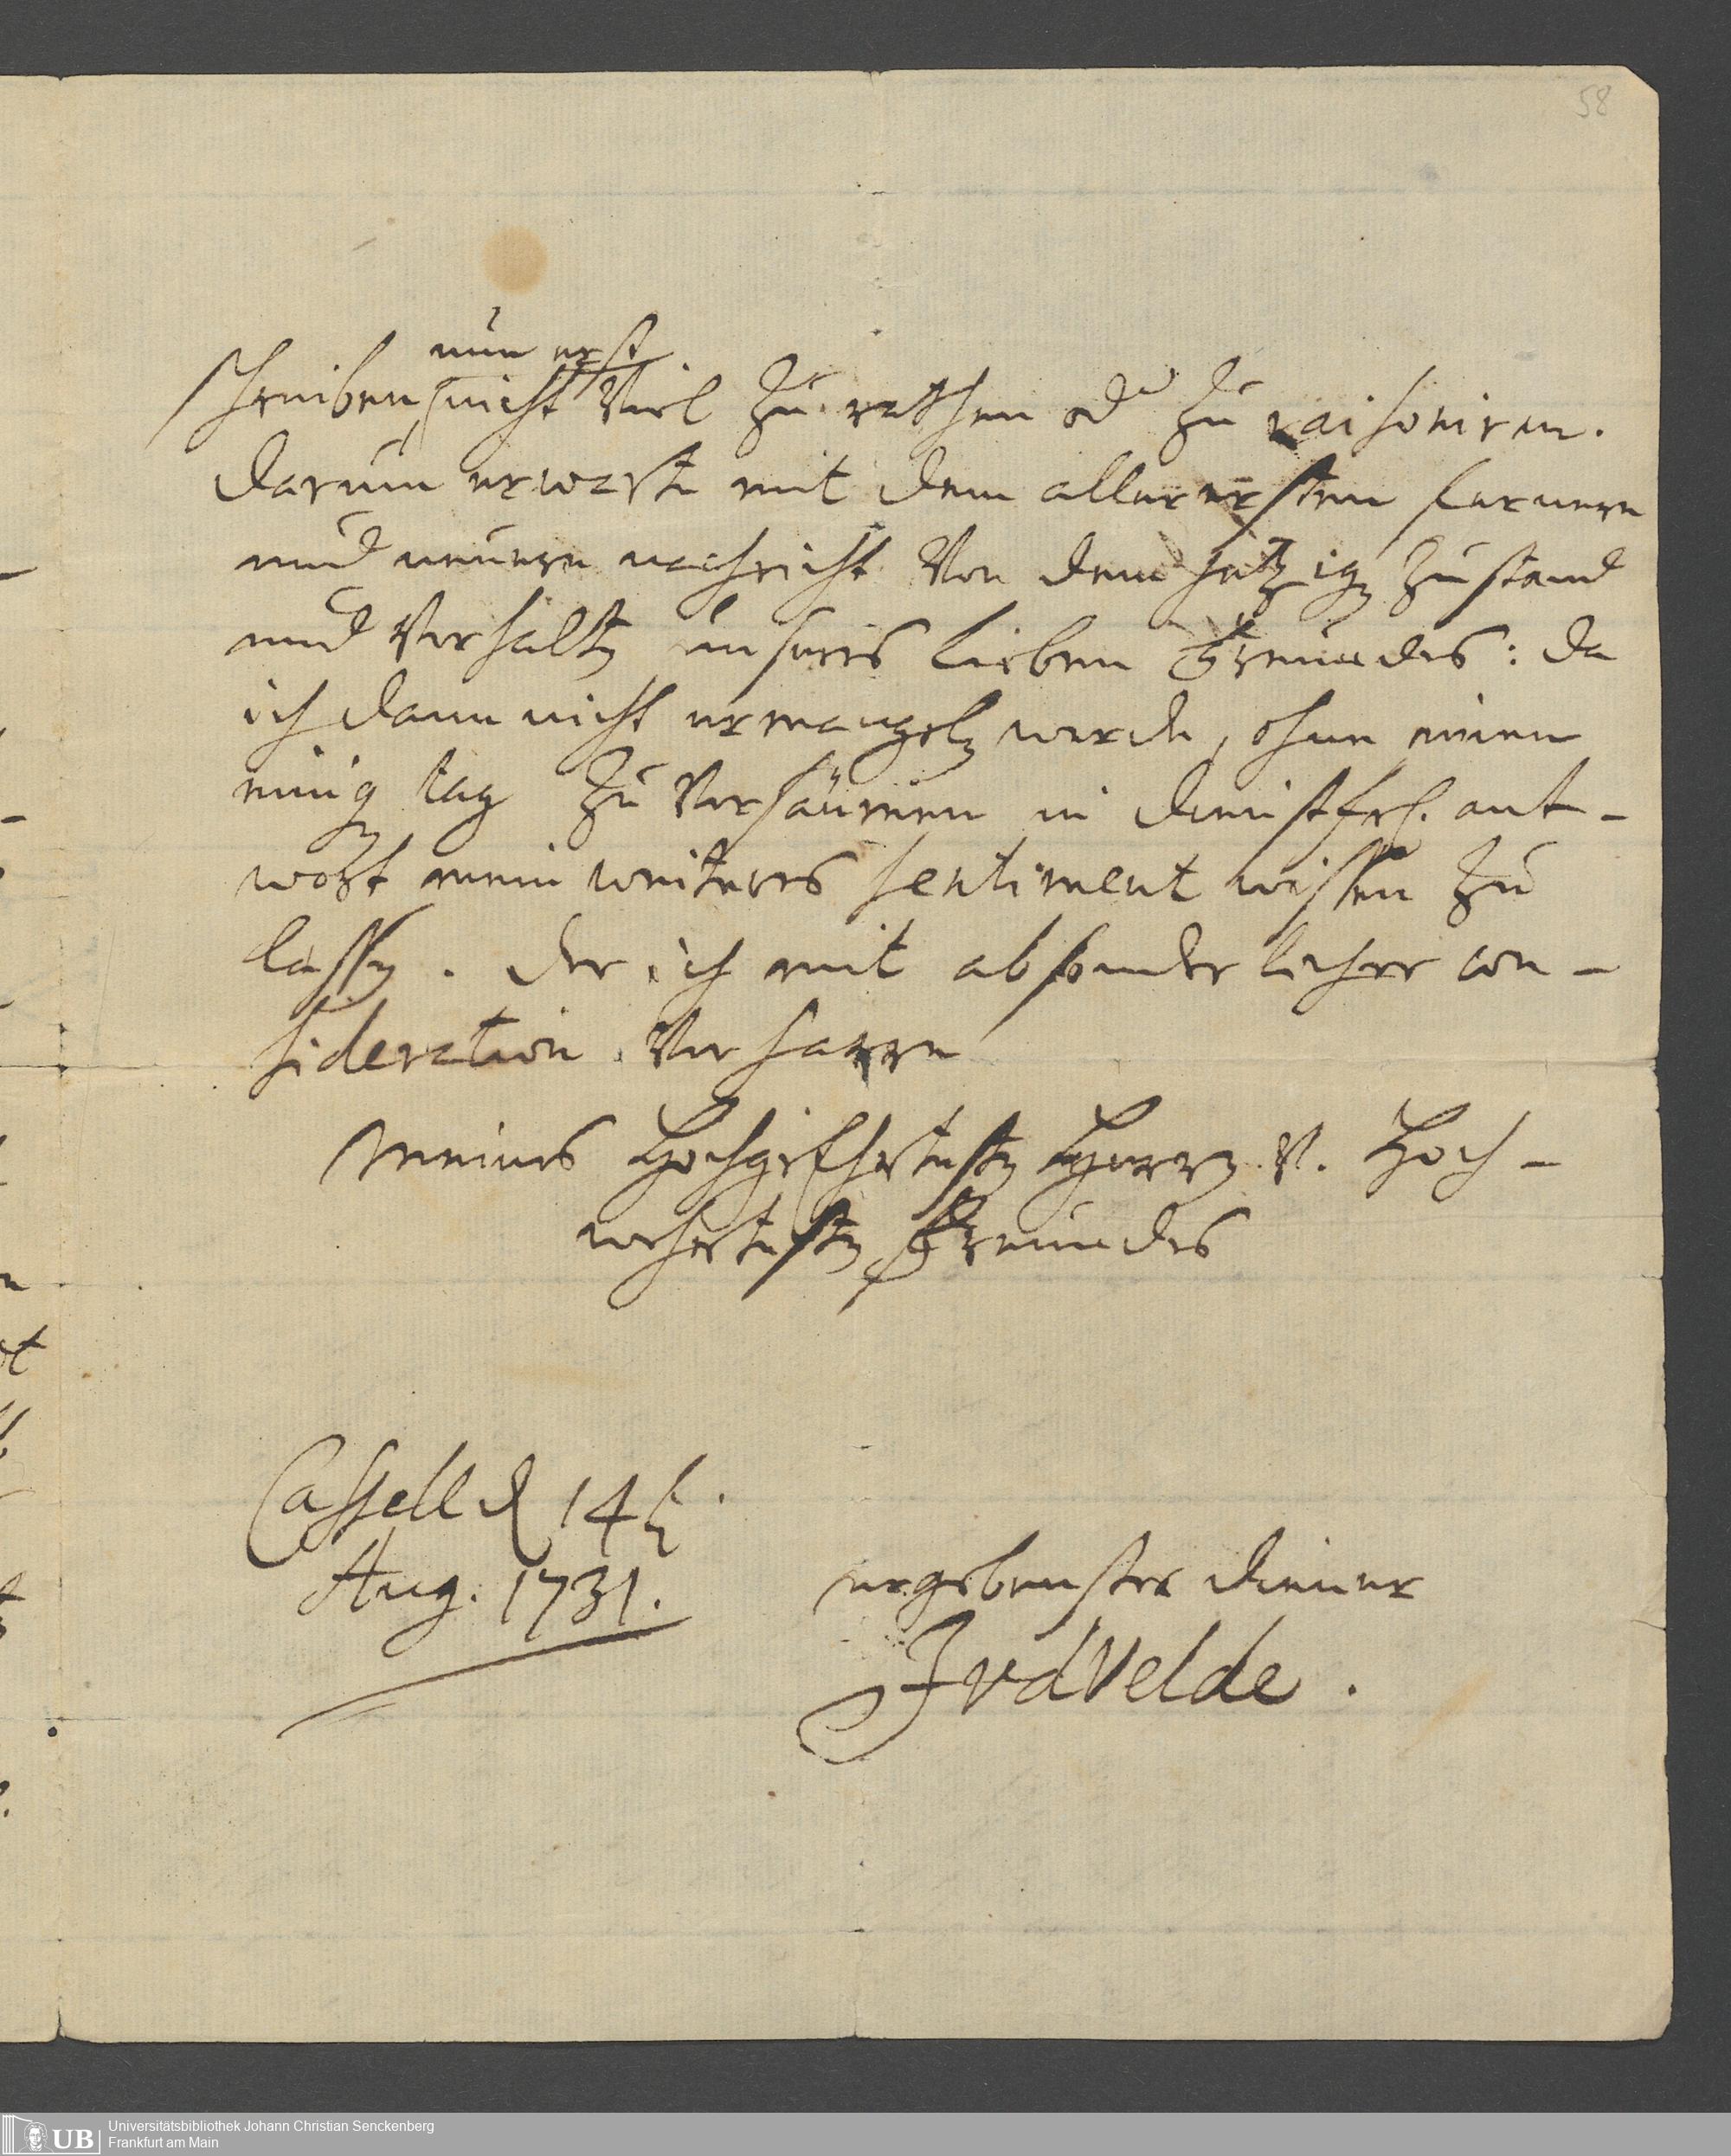 58
nun erst
schreiben, nicht Viel zu rathen od zu raisoniren.
darum erwarte mit dem allerersten fernere
und neuere nachricht Von dem jetzig Zustand
und Verhalt unseres lieben Freundes: da
ich dann nicht ermangeln werde, ohne einen
einig tag zu Versäumen in dienstfrl. ant-
wort mein weiteres sentiment wissen zu
lassen. der ich mit absonderlicher con-
sideration Verharre
Meines Hochgeehrtesten Herren V. Hoch-
wehrtesten Freundes
Cassell d 14t.
Aug. 1731.
ergebenster diener
JvdVelde.
UB Universitätsbibliothek Johann Christian Senckenberg
Frankfurt am Main